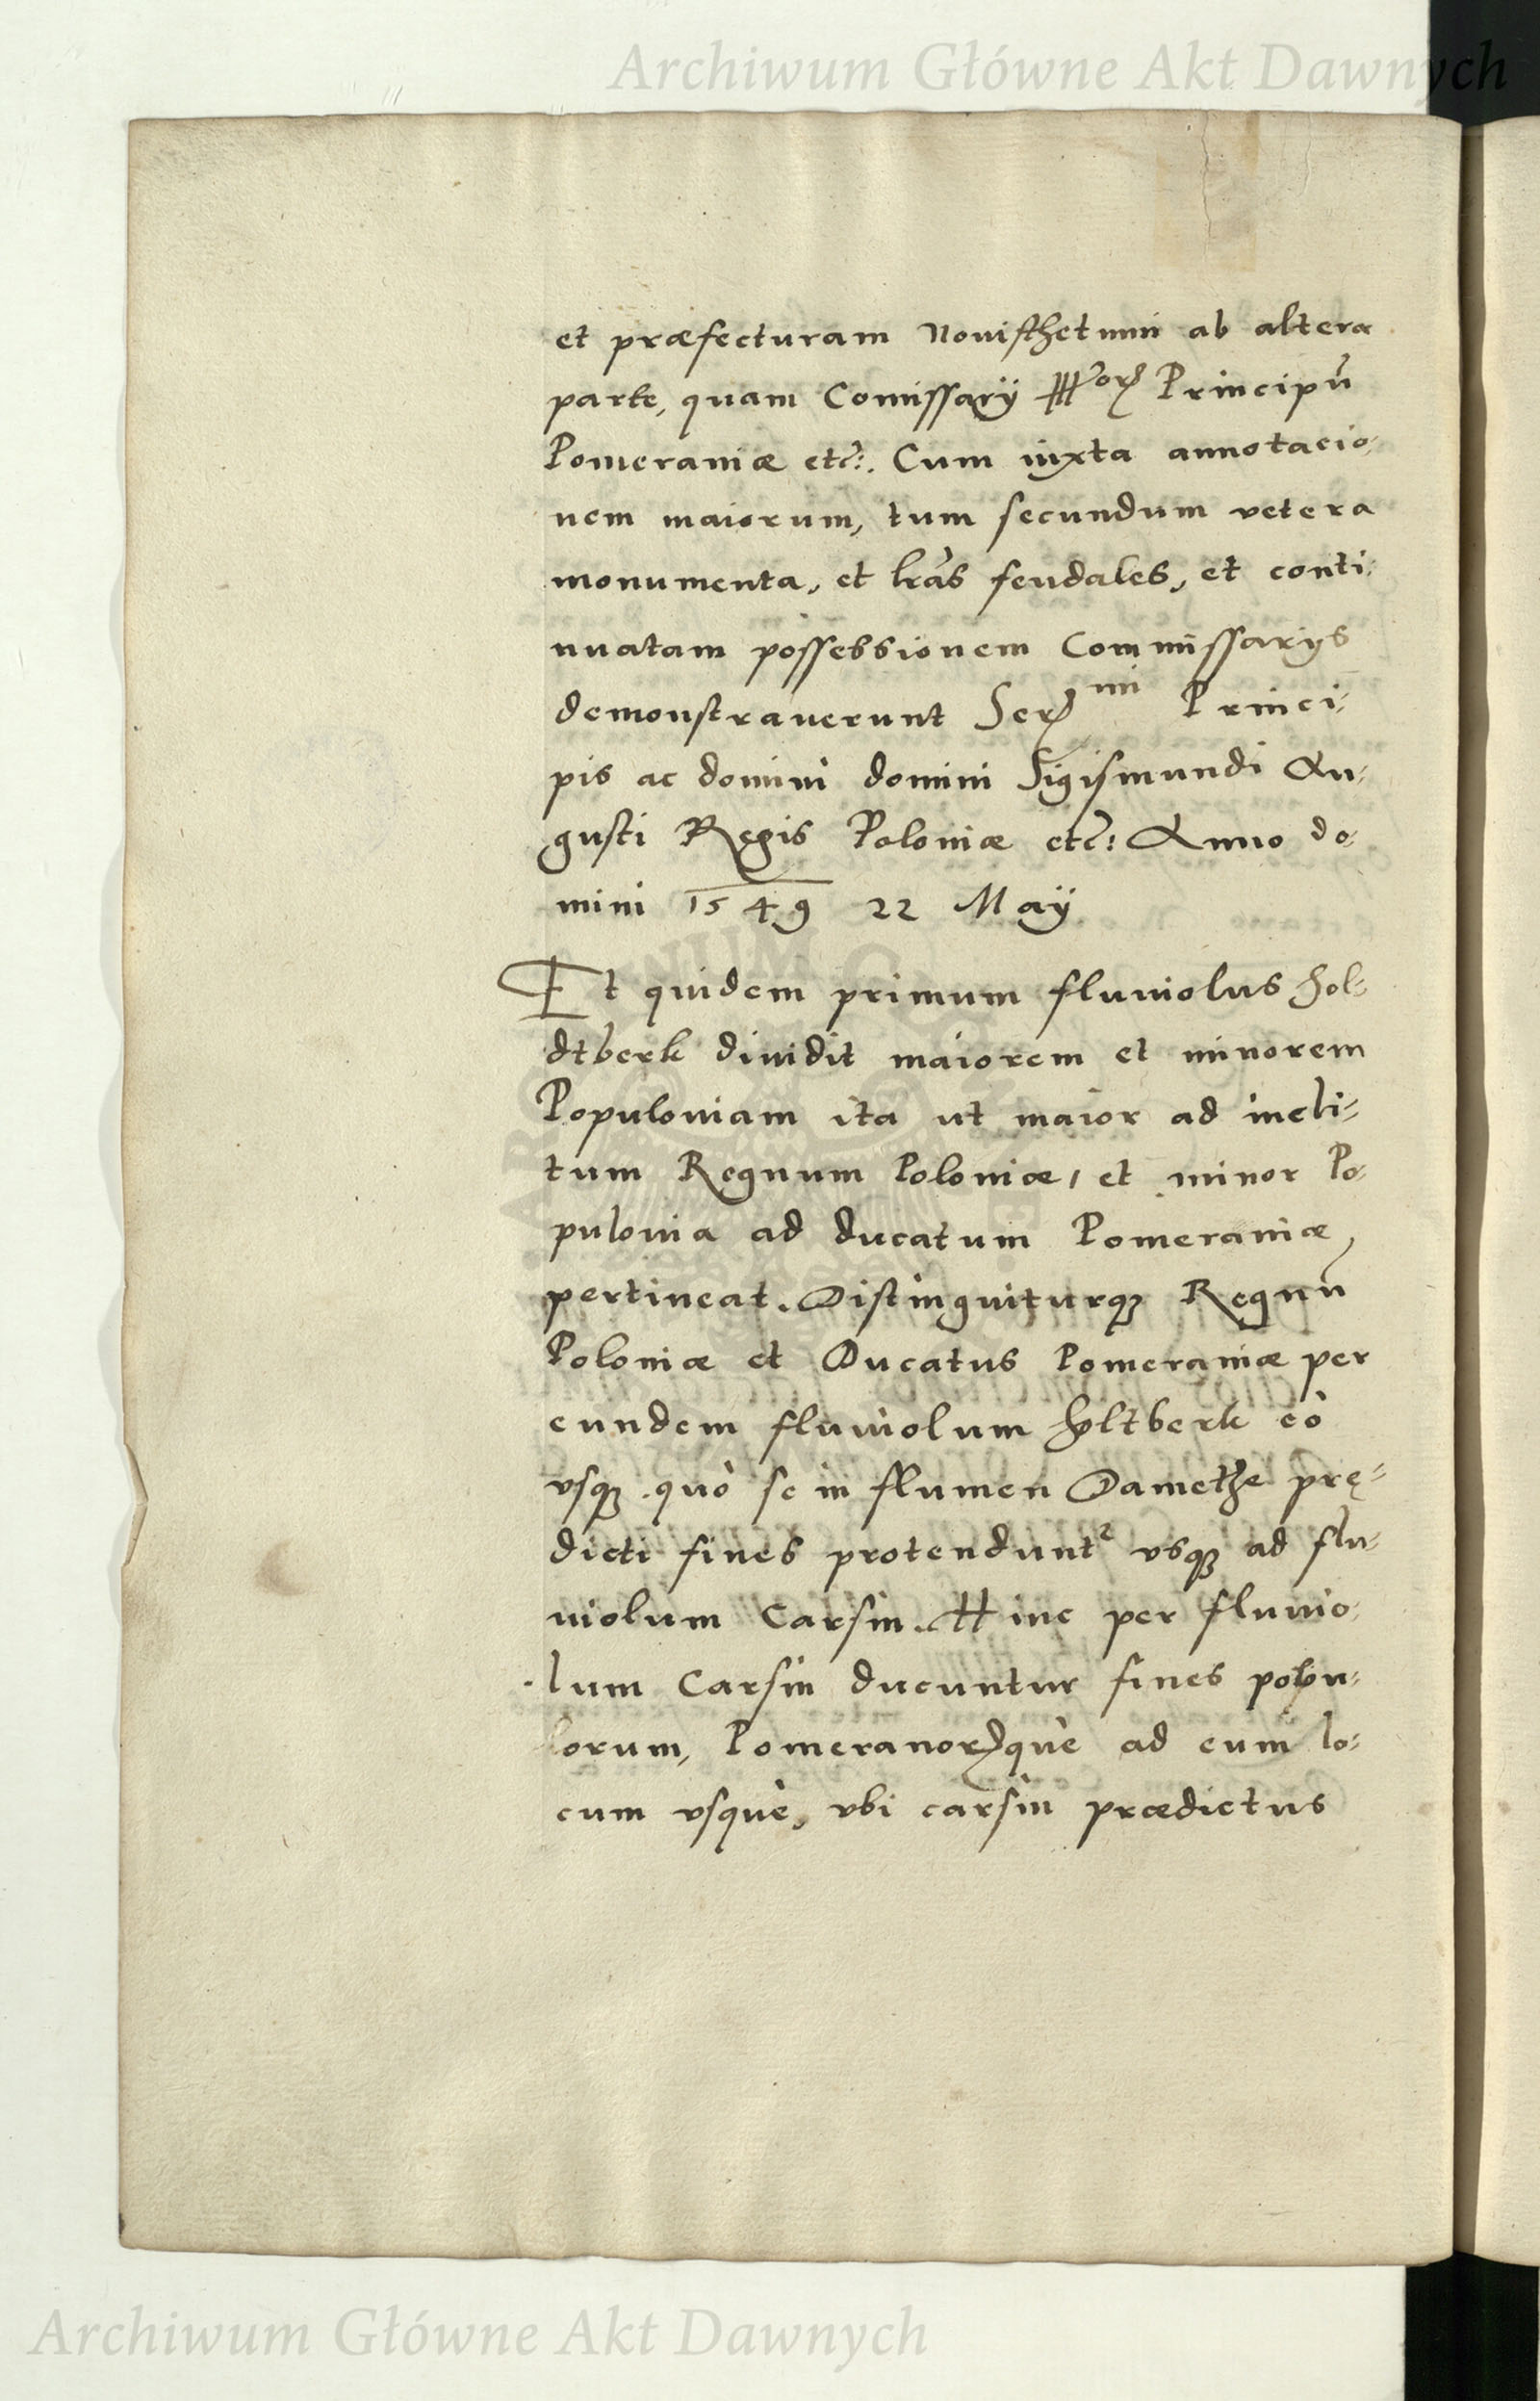 Archiwum Główne Akt Dawnych
et præfecturam Nouisthetinin ab altera
parte, quam Comissarÿ Principũ
Pomeraniæ etc: Cum iuxta annotacio-
nem maiorum, tum secundum vetera
monumenta, et lrãs feudales, et conti-
nuatam possessionem Commissarys
demonstrauerunt Princi-
pis ac domini domini Sigismundi Au-
gusti Regis Poloniæ etc: Anno do-
mini 1549 22 Maÿ
Et quidem primum fluuiolus Hol-
dtberk diuidit maiorem et minorem
Populoniam ita ut maior ad incli-
tum Regnum Poloniæ, et minor Po-
pulonia ad ducatum Pomeraniæ,
pertineat. Distinguiturq3 Regnũ
Poloniæ et Ducatus Pomeraniæ per
eundem fluuiolum Holtberk eò
vsq3 quò se in flumen Damethe prę-
dicti fines protendunt² vsq3 ad flu-
uiolum Carsin. Hinc per fluuio-
lum Carsin ducuntur fines polon-
orum, Pomeranorꝝquè ad eum lo-
cum vsquè, vbi carsin prædictus
Archiwum Główne Akt Dawnych